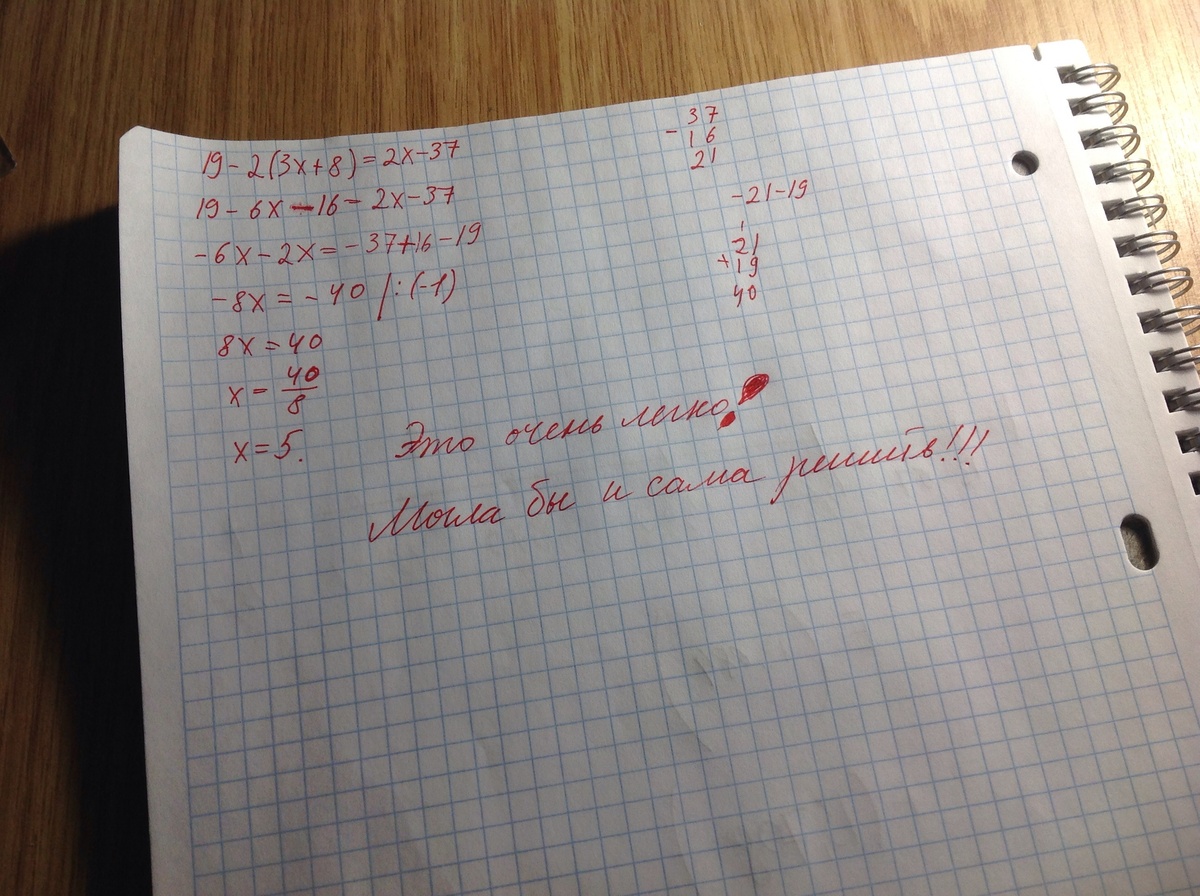 19-2(3x+8)=2x-37
19-6x-16-2x-37
-6x-2x=-37+16-19
-8x=-40 /:(-1)
8x=40
x=40/8
x=5.
37
-16
21
-21-19
1
21
+19
40
Это очень легко!
Могла бы и сама решить!!!